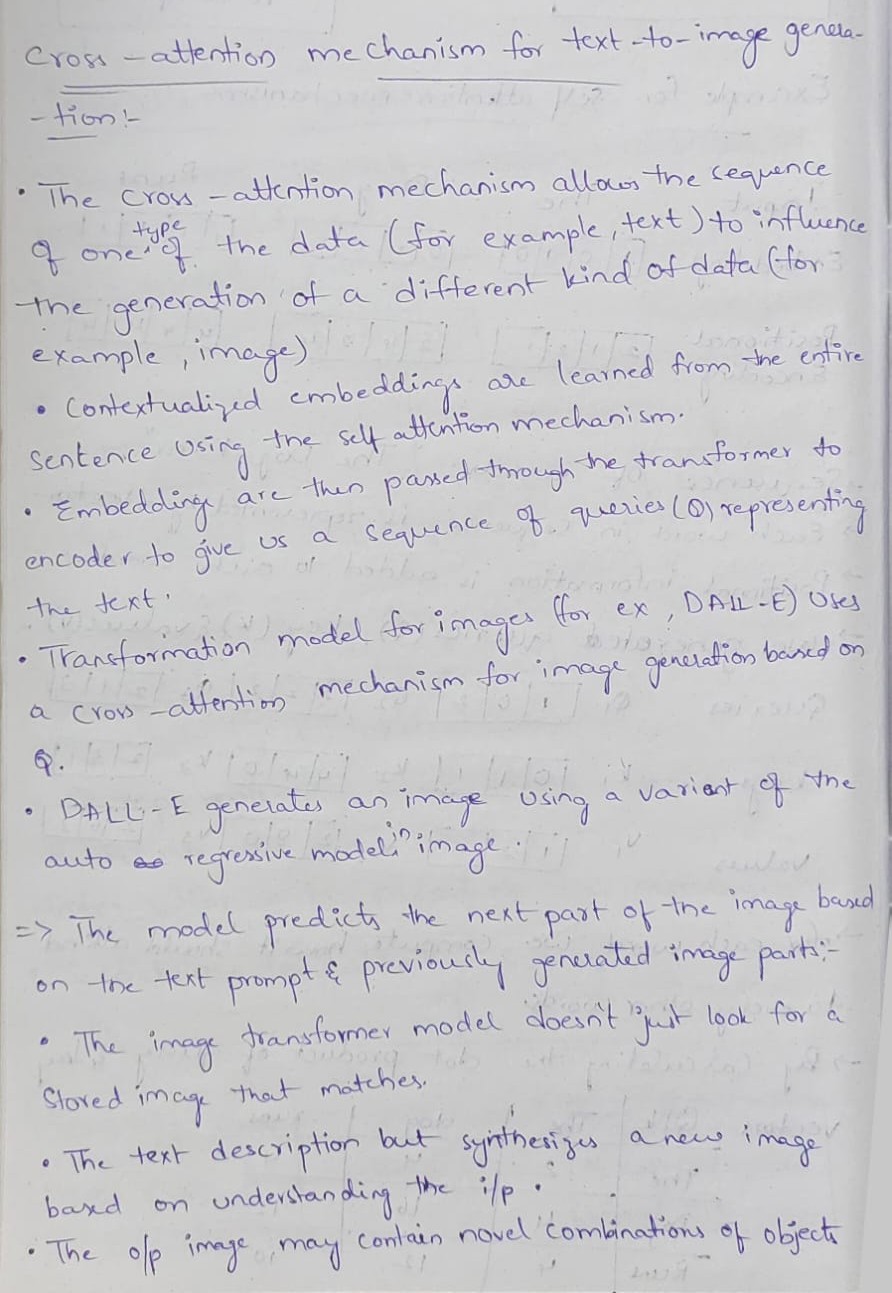 Cross - attention mechanism for text-to-image genera-
- tion:-
• The cross - attention mechanism allows the sequence
of one type of the data (for example, text) to influence
the generation of a different kind of data (for
example, image)
• Contextualized embeddings are learned from the entire
sentence using the self attention mechanism.
• Embeddings are then passed through the transformer to
encoder to give us a sequence of queries (Q) representing
the text.
• Transformation model for images (for ex, DALL-E) uses
a cross - attention mechanism for image generation based on
Q.
• DALL-E generates an image using a variant of the
auto regressive model in image.
=> The model predicts the next part of the image based
on the text prompt & previously generated image parts:-
• The image transformer model doesn't just look for a
stored image that matches.
• The text description but synthesizes a new image
based on understanding the i/p.
• The o/p image may contain novel combinations of objects